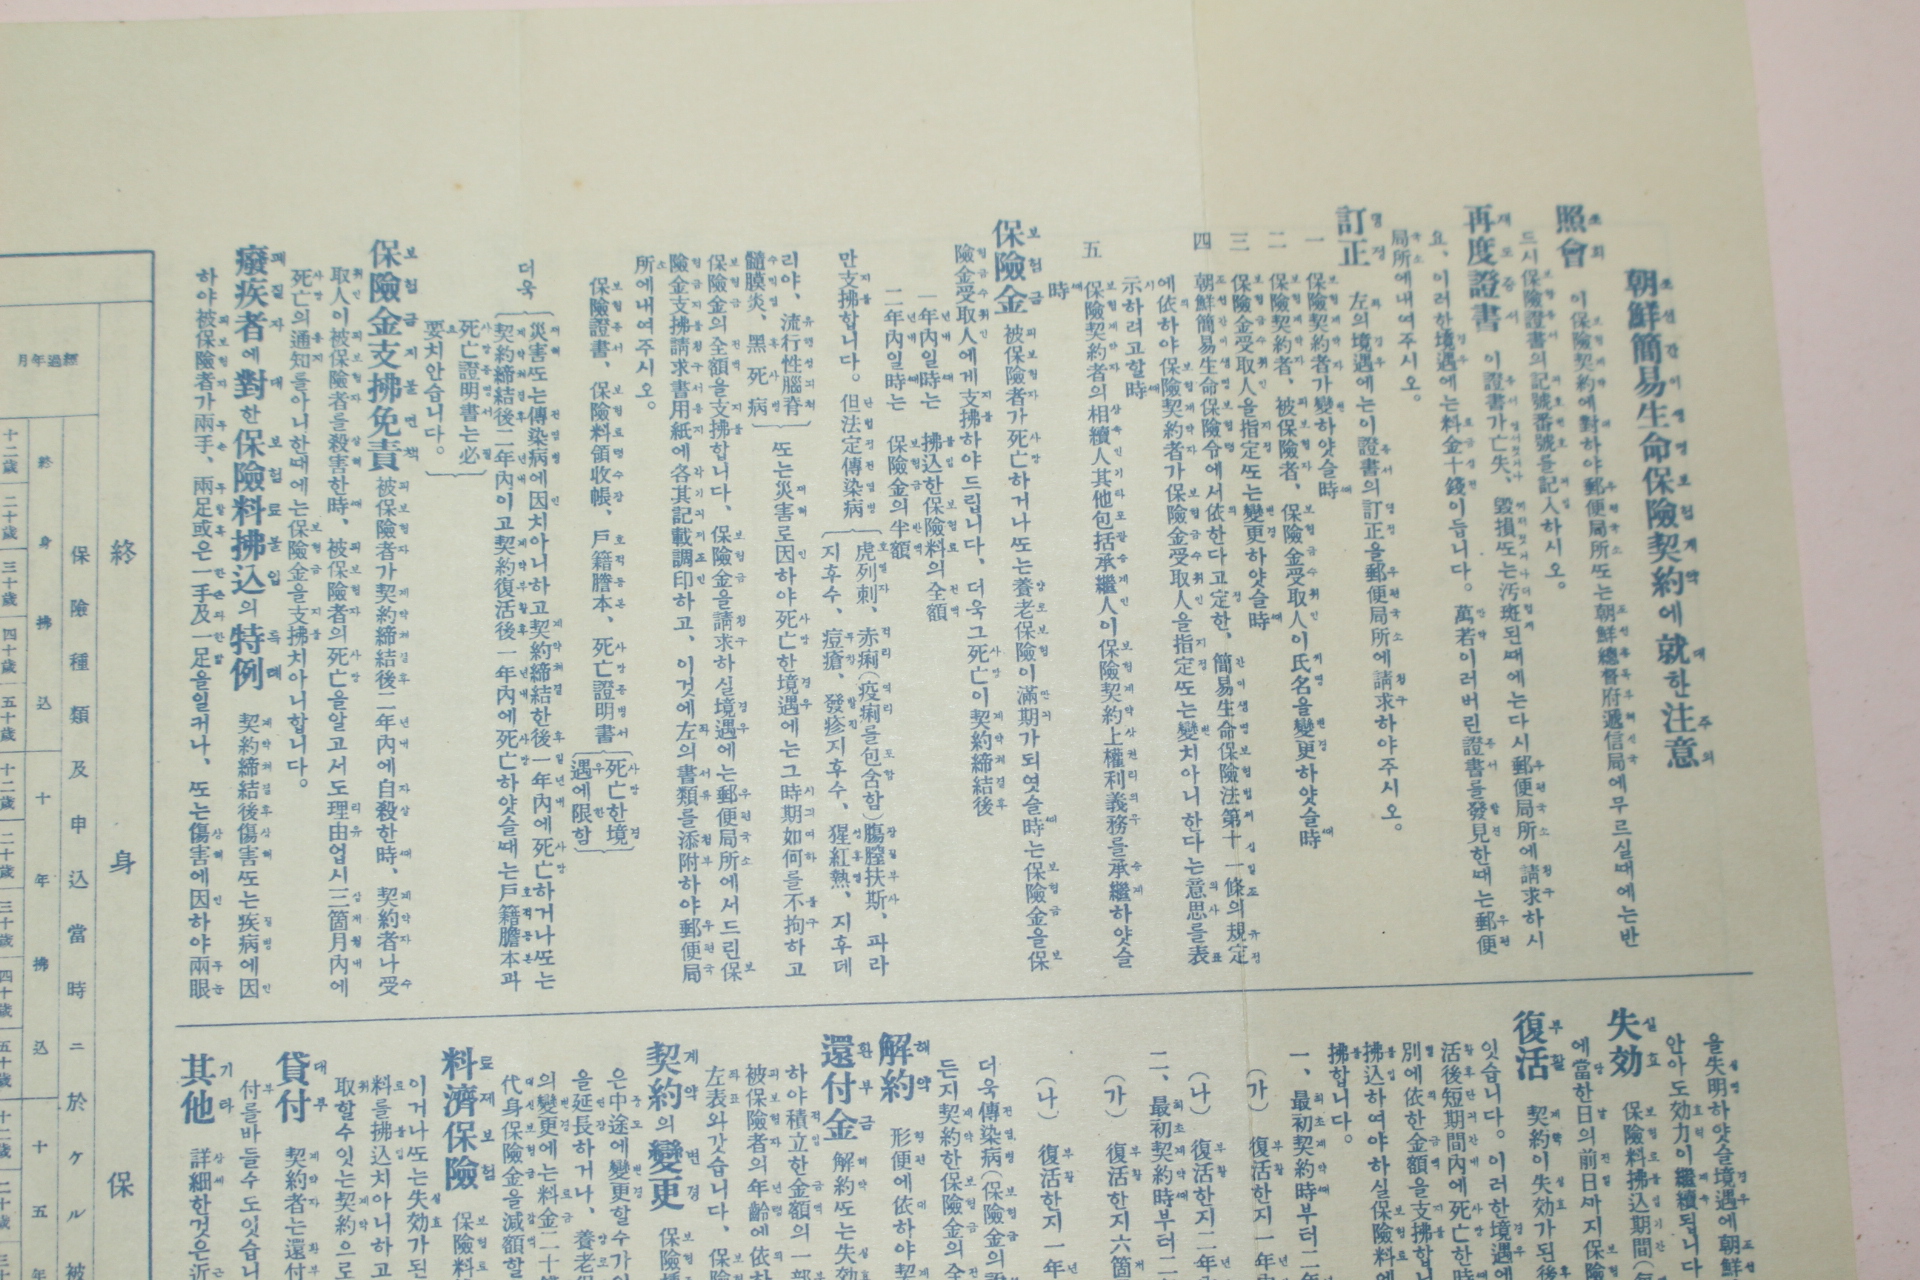 朝鮮簡易生命保險契約에就한注意
照會 이保險契約에對하야郵便局所ᄯᅩ는朝鮮總督府遞信局에무르실때에는반
드시保險證書의記號番號를記入하시오。
再度證書 이證書가亡失、毀損ᄯᅩ는汚斑된때에는다시郵便局所에請求하시
요、이러한境遇에는料金十錢이듭니다。萬若이러버린證書를發見한때는郵便
局所에내여주시오。
訂正 左의境遇에는이證書의訂正을郵便局所에請求하야주시오。
一 保險契約者가變하얏슬時
二 保險契約者、被保險者、保險金受取人이氏名을變更하얏슬時
三 保險金受取人을指定ᄯᅩ는變更하얏슬時
四 朝鮮簡易生命保險令에서依한다고定한、簡易生命保險法第十一條의規定
에依하야保險契約者가保險金受取人을指定ᄯᅩ는變치아니한다는意思를表
示하려고할時
五 保險契約者의相續人其他包括承繼人이保險契約上權利義務를承繼하얏슬
時
保險金 被保險者가死亡하거나ᄯᅩ는養老保險이滿期가되엿슬時는保險金을保
險金受取人에게支拂하야드립니다、더욱그死亡이契約締結後
一年內일時는 拂込한保險料의全額
二年內일時는 保險金의半額
만支拂합니다。但法定傳染病
虎列刺、赤痢(疫痢를包含함)膓膣扶斯、파라
지후수、痘瘡、發疹지후수、猩紅熱、지후데
리야、流行性腦脊
髓膜炎、黑死病
ᄯᅩ는災害로因하야死亡한境遇에는그時期如何를不拘하고
保險金의全額을支拂합니다、保險金을請求하실境遇에는郵便局所에서드린保
險金支拂請求書用紙에各其記載調印하고、이것에左의書類를添附하야郵便局
所에내여주시오。
保險證書、保險料領收帳、戶籍謄本、死亡證明書
死亡한境
遇에限함
더욱
災害ᄯᅩ는傳染病에因치아니하고契約締結한後一年內에死亡하거나ᄯᅩ는
契約締結後二年內이고契約復活後一年內에死亡하얏슬때는戶籍謄本과
死亡證明書는必
要치안습니다。
保險金支拂免責 被保險者가契約締結後二年內에自殺한時、契約者나受
取人이被保險者를殺害한時、被保險者의死亡을알고서도理由업시三箇月內에
死亡의通知를아니한때에는保險金을支拂치아니합니다。
癈疾者에對한保險料拂込의特例 契約締結後傷害ᄯᅩ는疾病에因
하야被保險者가兩手、兩足或은一手及一足을일커나、ᄯᅩ는傷害에因하야兩眼
을失明하얏슬境遇에朝鮮
안아도効力이繼續됩니다
失効 保險料拂込期間
에當한日의前日ᄭᅡ지保險
復活 契約이失効가된後
잇습니다。이러한境遇에
活後短期間內에死亡한時
別에依한金額을支拂합니
拂込하여야하실保險料에
拂합니다。
一、最初契約時부터二年
(가) 復活한지一年
(나) 復活한지二年
二、最初契約時부터二
(가) 復活한지六箇
(나) 復活한지一年
더욱傳染病(保險金의
든지契約한保險金의全
解約 形便에依하야契
還付金 解約ᄯᅩ는失効
하야積立한金額의一部
被保險者의年齡에依하
左表와갓습니다、保險
契約의變更 保險
은中途에變更할수가잇
을延長하거나、養老保
의變更에는料金二十錢
代身保險金을減額할
料濟保險 保險料
이거나ᄯᅩ는失効가된
料를拂込치아니하고
取할수잇는契約으로
貸付 契約者는還付
付를바들수도잇습니
其他 詳細한것은近
終 身 保
保險種類及申込當時ニ於ケル被
終身拂込 十年拂込 十五年
經過年月
十二歲 二十歲 三十歲 四十歲 五十歲 十二歲 二十歲 三十歲 四十歲 五十歲 十二歲 二十歲